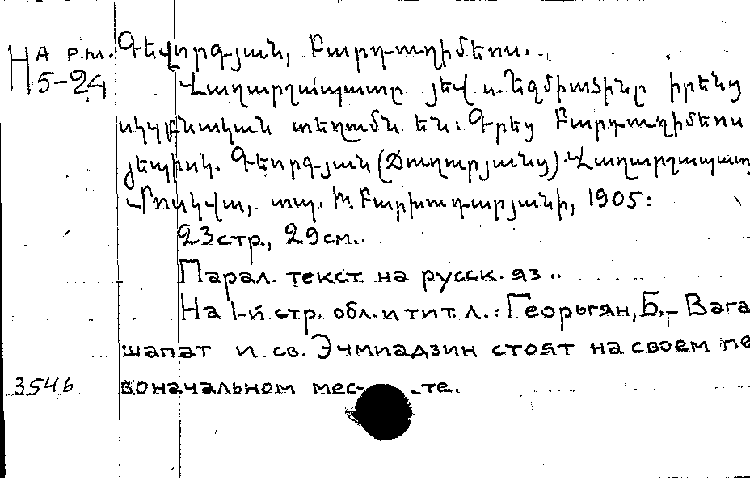 НА р.ш. Գեվորգյան, Բարդուղիմեոս.
Н 5-24 Վաղարշապատը յեվ ս. Եզմիածինը իրենց
սկզբնական տեղումն են: Գրեց Բարդուղիմեոս
յեպիսկ. Գեորգյան (Չուղուրյանց) Վաղարշապատ
Մոսկվա, տպ. Խ. Բարխուդարյանի, 1905:
23стр., 29см.
Парал. текст на русск. яз..
На 1-й стр. обл. и тит. л.: Георьгян, Б.- Вага
шапат и св. Эчмиадзин стоят на своем пе
3546 воначальном мес- -те.